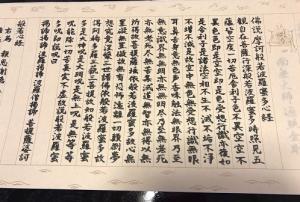 佛說摩訶般若波羅蜜多心經
觀自在菩薩行深般若波羅蜜多時照見五
蘊皆空度一切苦厄舍利子色不異空空不
異色色即是空空即是色受想行識亦復如
是舍利子是諸法空相不生不滅不垢不淨
不增不減是故空中無色無受想行識無眼
耳鼻舌身意無色聲香味觸法無眼界乃至
無意識界無無明亦無無明盡乃至無老死
亦無老死盡無苦集滅道無智亦無得以無
所得故菩提薩埵依般若波羅蜜多故心無
罣礙無罣礙故無有恐怖遠離一切顛倒夢
想究竟涅槃三世諸佛依般若波羅蜜多故
得阿耨多羅三藐三菩提故知般若波羅蜜
多是大神呪是大明呪是無上呪是無等等
呪能除一切苦真實不虛故說般若波羅蜜
多呪即說呪曰
揭諦揭諦 波羅揭諦 波羅僧揭諦 菩提薩婆訶
般若心經